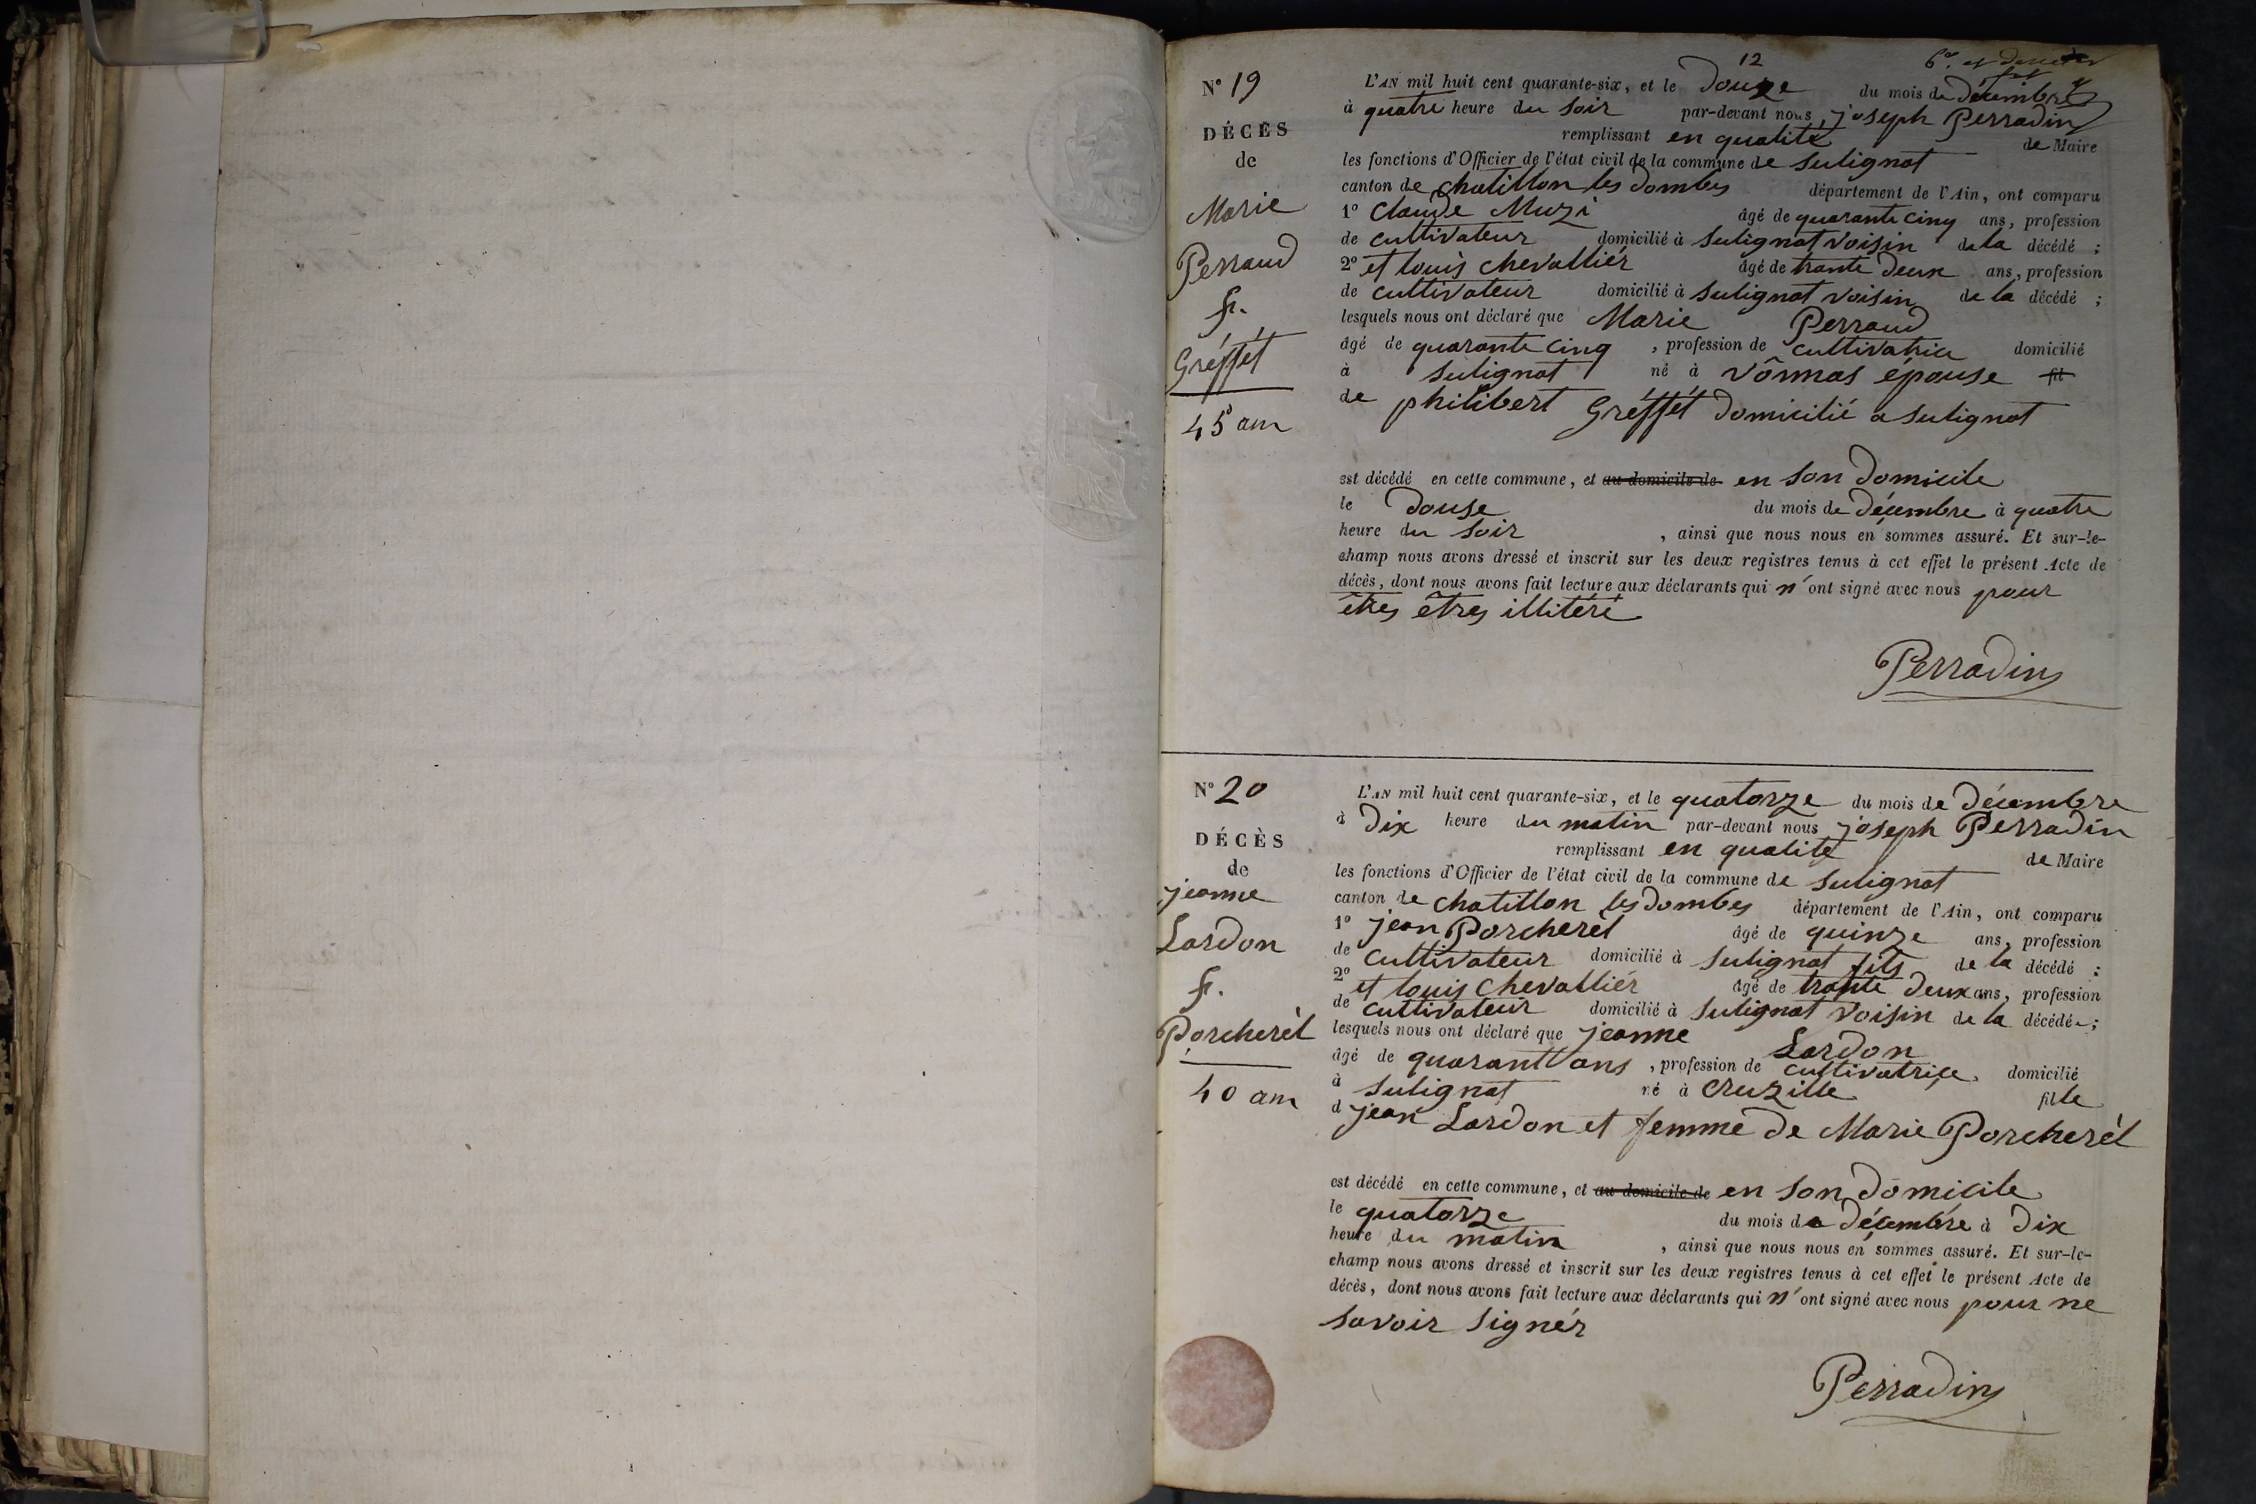 12
6e. et dernier
N° 19
DÉCÈS
de
Marie
Perraud
f.
Gréffét
45 ans
L'AN mil huit cent quarante-six, et le douze du mois de décembre
à quatre heure du soir par-devant nous, joseph Perradin
remplissant en qualité de Maire
les fonctions d'Officier de l'état civil de la commune de Sulignat
canton de chatillon les dombes département de l'Ain, ont comparu
1° Claude Muzi âgé de quarante cinq ans, profession
de cultivateur domicilié à Sulignat voisin de la décédé ;
2° et louis chevalliér âgé de trante deux ans, profession
de cultivateur domicilié à Sulignat voisin de la décédé ;
lesquels nous ont déclaré que Marie Perraud
âgé de quarante cinq , profession de cultivatrice domicilié
à Sulignat né à vônnas épouse fil
de philibert Gréffét domicilié a Sulignat
est décédé en cette commune, et au domicile de en son domicile
le douse du mois de décembre à quatre
heure du soir , ainsi que nous nous en sommes assuré. Et sur-le-
champ nous avons dressé et inscrit sur les deux registres tenus à cet effet le présent Acte de
décès, dont nous avons fait lecture aux déclarants qui n'ont signé avec nous pour
êtres êtres illitéré
Perradin
N° 20
DÉCÈS
de
jeanne
Lardon
f.
Porcherèl
40 ans
L'AN mil huit cent quarante-six, et le quatorze du mois de décembre
à dix heure du matin par-devant nous joseph Perradin
remplissant en qualité de Maire
les fonctions d'Officier de l'état civil de la commune de Sulignat
canton de chatillon les dombes département de l'Ain, ont comparu
1° jean Porcherèl âgé de quinze ans, profession
de cultivateur domicilié à Sulignat fils de la décédé ;
2° et louis chevalliér âgé de trante deux ans, profession
de cultivateur domicilié à Sulignat voisin de la décédée ;
lesquels nous ont déclaré que jeanne Lardon
âgé de quarant ans , profession de cultivatrice domicilié
à Sulignat né à cruzille fille
d jean Lardon et femme de Marie Porcherél
est décédé en cette commune, et au domicile de en son domicile
le quatorze du mois de décembre à dix
heure du matin , ainsi que nous nous en sommes assuré. Et sur-le-
champ nous avons dressé et inscrit sur les deux registres tenus à cet effet le présent Acte de
décès, dont nous avons fait lecture aux déclarants qui n'ont signé avec nous pour ne
savoir signér
Perradin